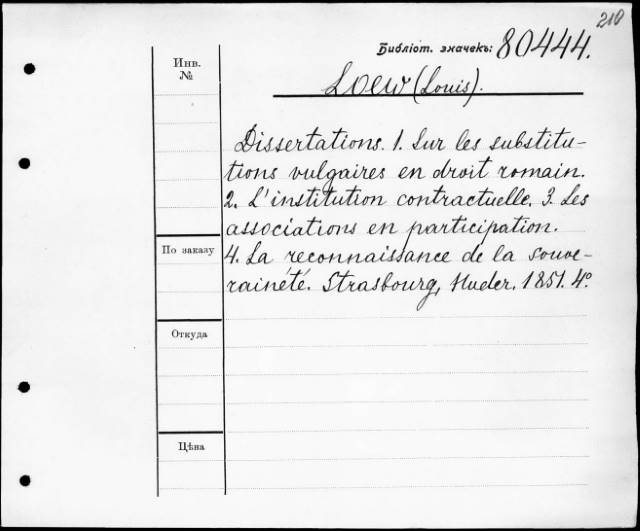 210
Библіот. значекъ: 80444.
Инв.
№
Loew (Louis).
Dissertations. 1. Sur les substitu-
tions vulgaires en droit romain.
2. L'institution contractuelle. 3. Les
associations en participation.
По заказу
4. La reconnaissance de la souve-
raineté. Strasbourg, Huder. 1851. 4º
Откуда
Цѣна